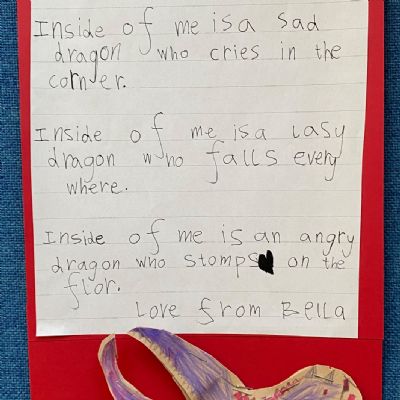 Inside of me is a sad
dragon who cries in the
corner.
Inside of me is a lasy
dragon who falls every
where.
Inside of me is an angry
dragon who stomps on the
flor.
Love from Bella